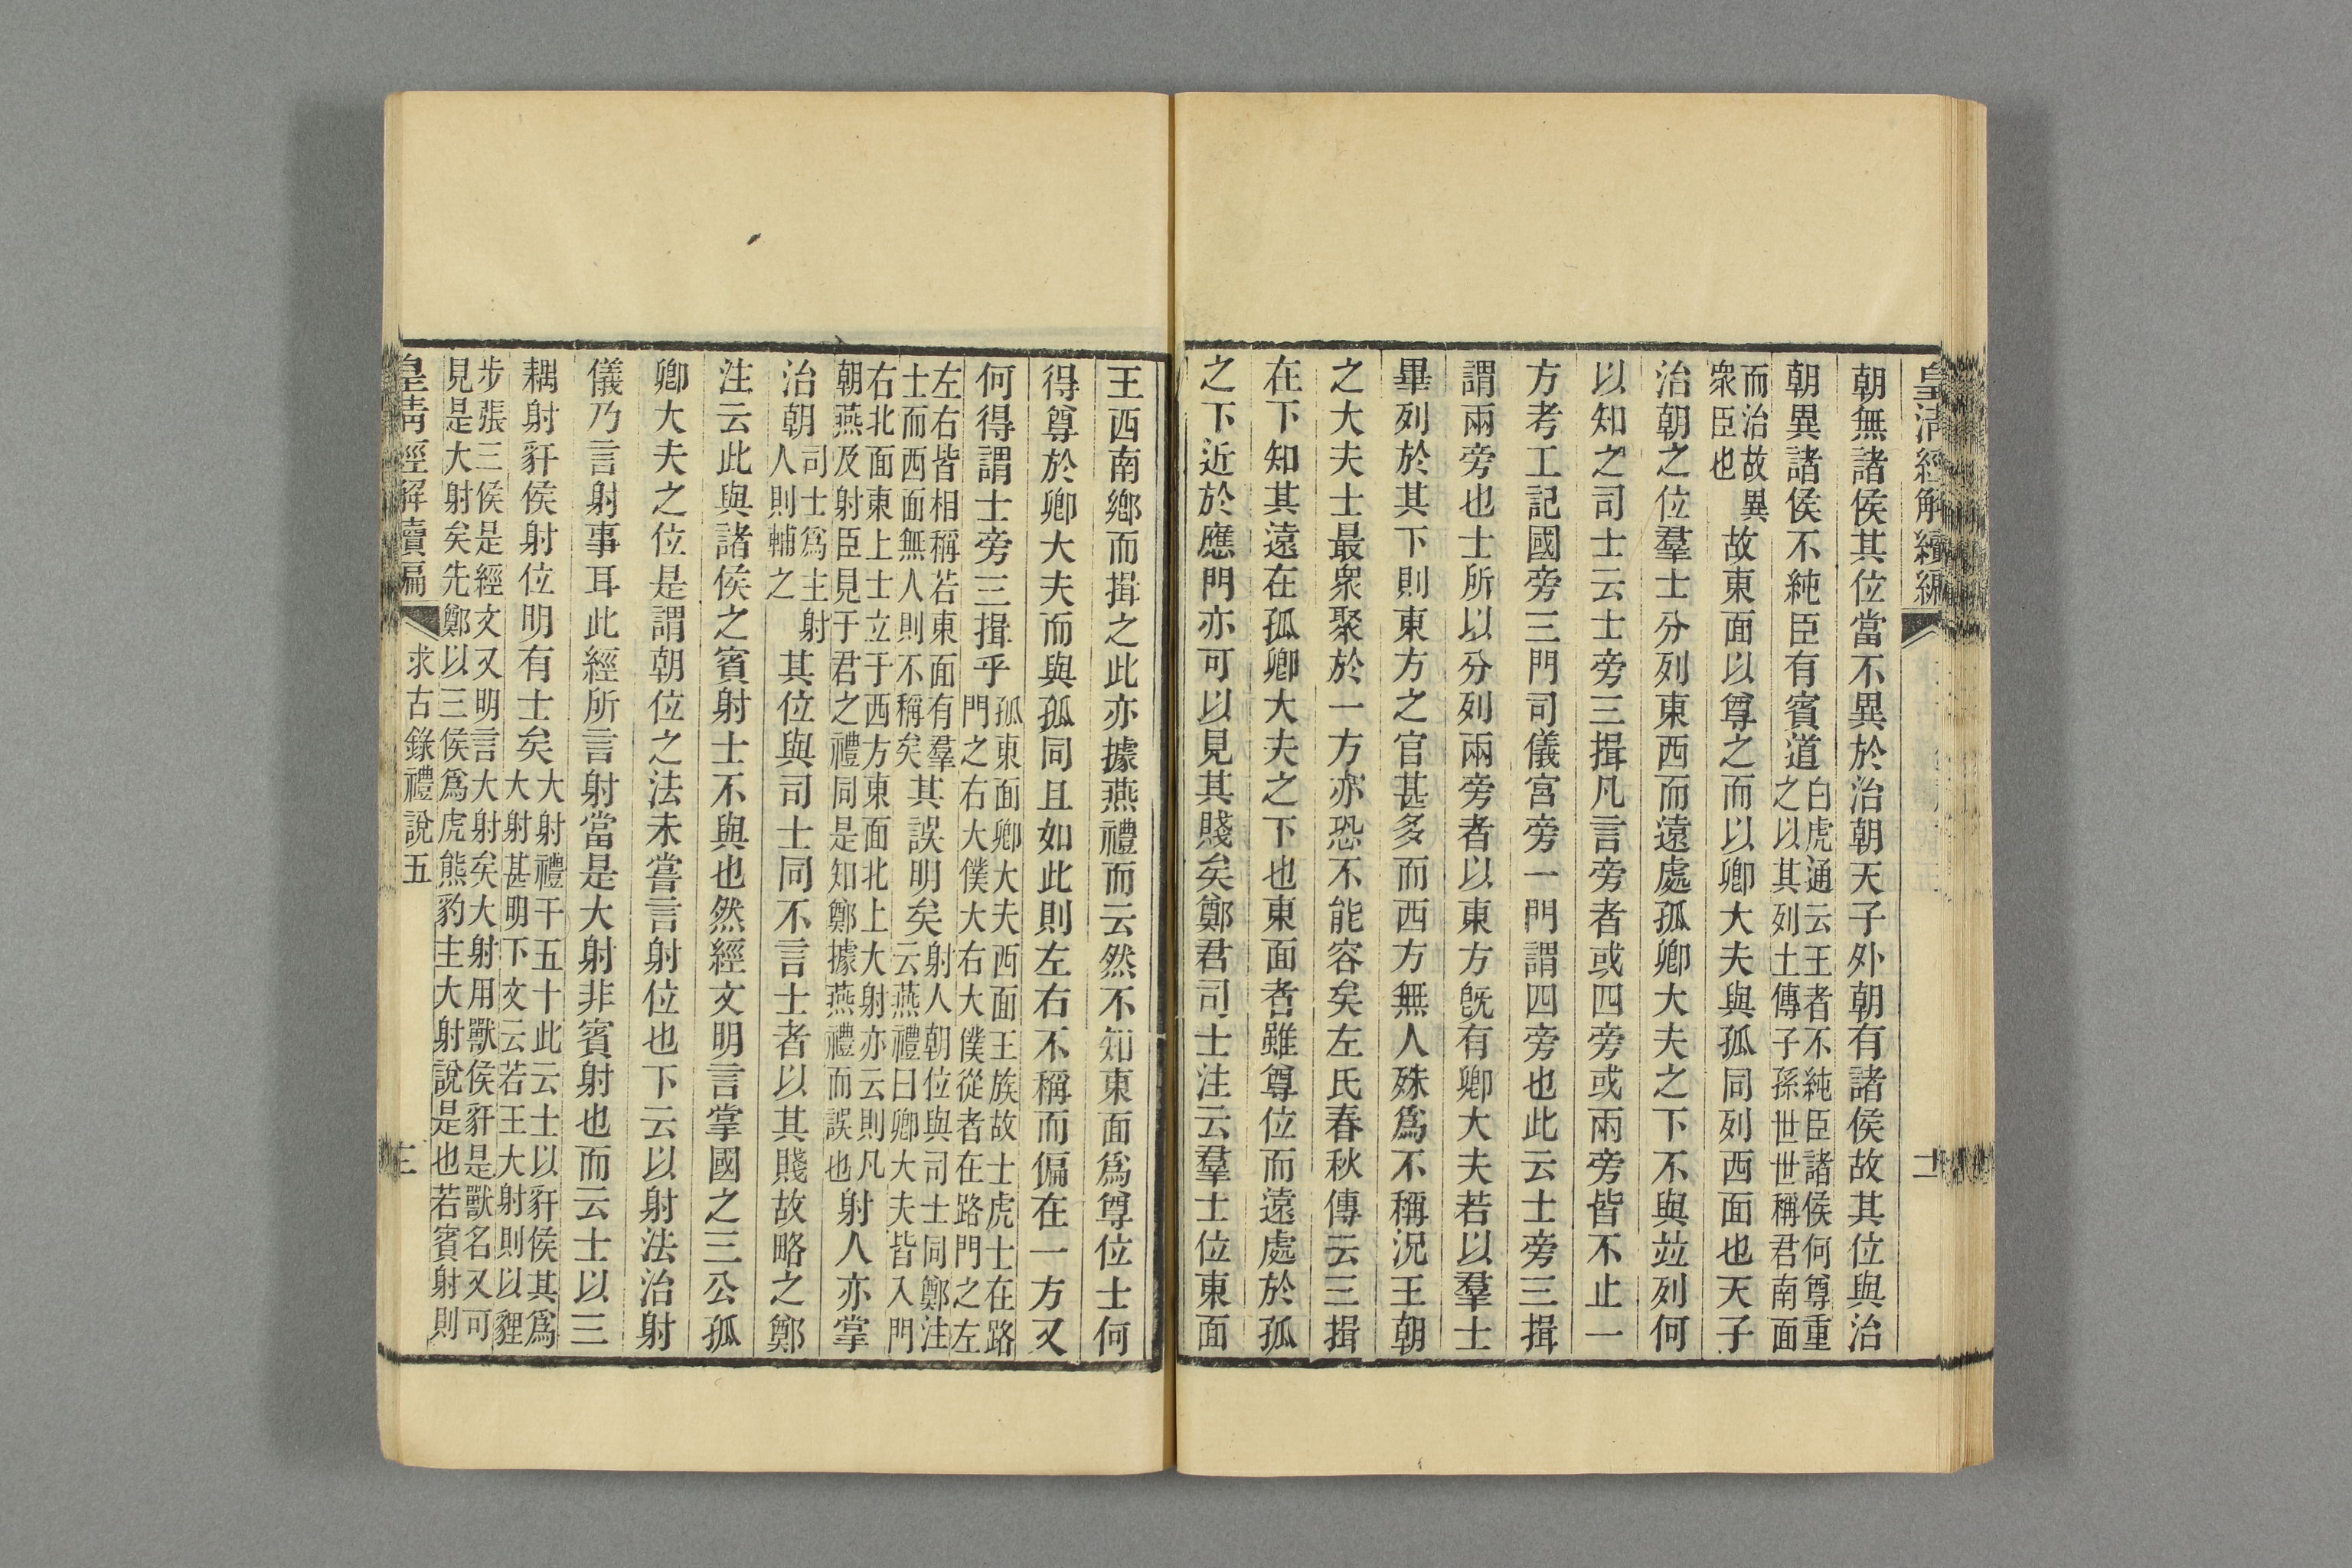 皇淸經解續編
朝無諸侯其位當不異於治朝天子外朝有諸侯故其位與治
朝異諸侯不純臣有賓道白虎通云王者不純臣諸侯何尊重
之以其列土傳子孫世世稱君南面
而治故異
衆臣也故東面以尊之而以卿大夫與孤同列西面也天子
治朝之位羣士分列東西而遠處孤卿大夫之下不與竝列何
以知之司士云士旁三揖凡言旁者或四旁或兩旁皆不止一
方考工記國旁三門司儀宮旁一門謂四旁也此云士旁三揖
謂兩旁也士所以分列兩旁者以東方旣有卿大夫若以羣士
畢列於其下則東方之官甚多而西方無人殊爲不稱況王朝
之大夫士最衆聚於一方亦恐不能容矣左氏春秋傳云三揖
在下知其遠在孤卿大夫之下也東面者雖尊位而遠處於孤
之下近於應門亦可以見其賤矣鄭君司士注云羣士位東面
王西南鄉而揖之此亦據燕禮而云然不知東面爲尊位士何
得尊於卿大夫而與孤同且如此則左右不稱而偏在一方又
何得謂士旁三揖乎孤東面卿大夫西面王族故士虎士在路
門之右大僕大右大僕從者在路門之左
左右皆相稱若東面有羣
士而西面無人則不稱矣其誤明矣射人朝位與司士同鄭注
云燕禮曰卿大夫皆入門
右北面東上士立于西方東面北上大射亦云則凡
朝燕及射臣見于君之禮同是知鄭據燕禮而誤也射人亦掌
治朝司士爲主射
人則輔之其位與司士同不言士者以其賤故略之鄭
注云此與諸侯之賓射士不與也然經文明言掌國之三公孤
卿大夫之位是謂朝位之法未嘗言射位也下云以射法治射
儀乃言射事耳此經所言射當是大射非賓射也而云士以三
耦射豻侯射位明有士矣大射禮干五十此云士以豻侯其爲
大射甚明下文云若王大射則以貍
步張三侯是經文又明言大射矣大射用獸侯豻是獸名又可
見是大射矣先鄭以三侯爲虎熊豹主大射說是也若賓射則
皇淸經解續編
求古錄禮說五
三